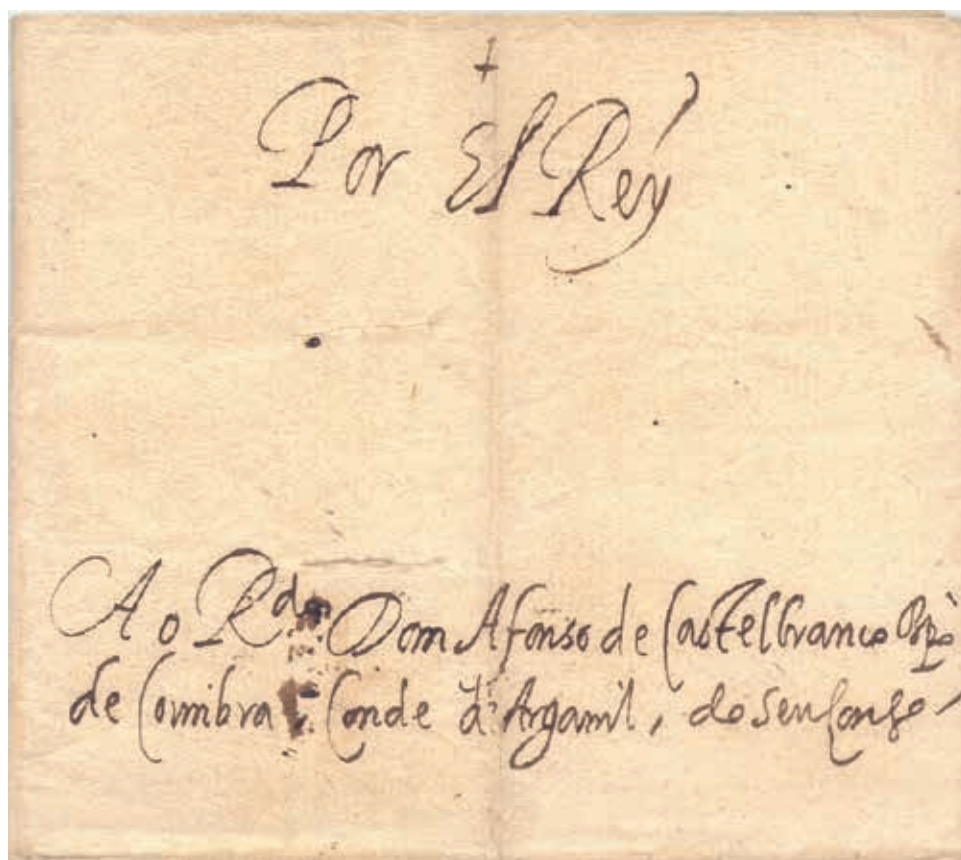 +
Por El Rey
A o Rdo Dom Afonso de Castelbranco Bpo
de Coimbra, Conde d'Arganil, do seu Conso